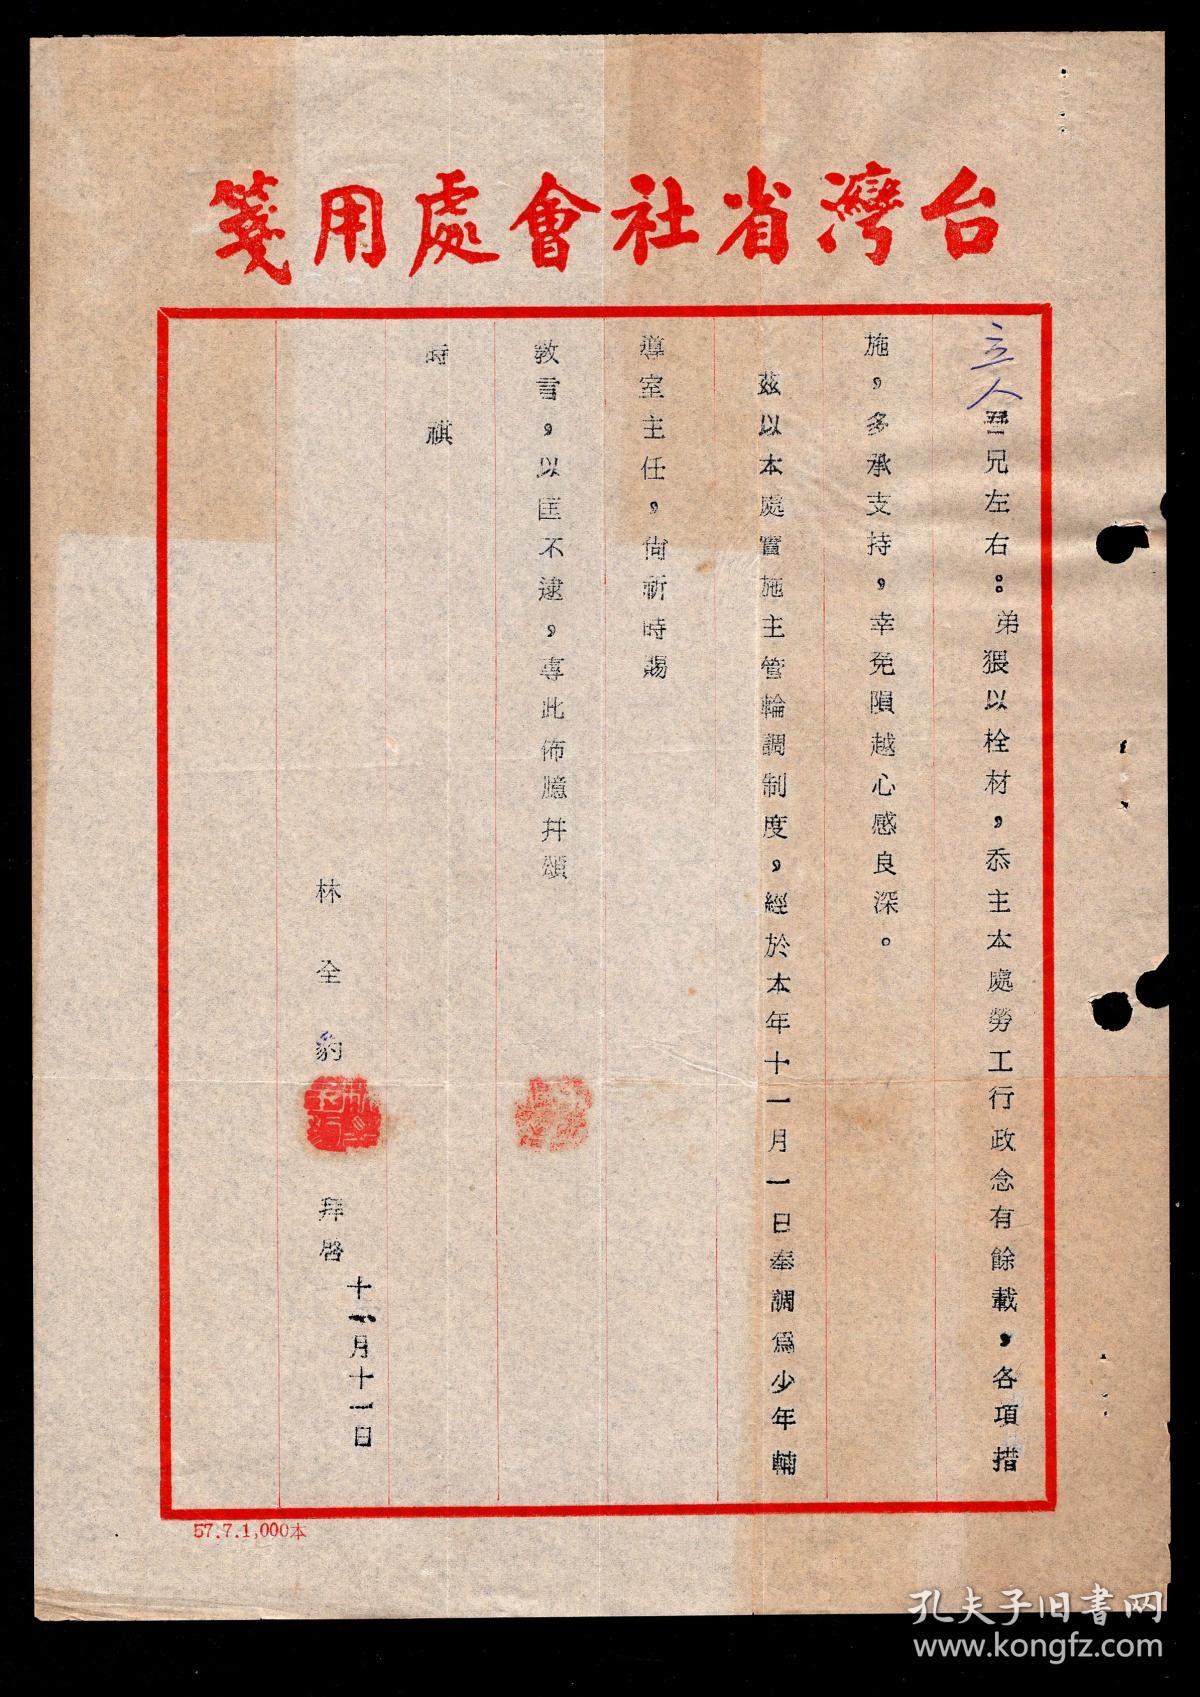 台灣省社會處用箋
立人吾兄左右：弟猥以栓材，忝主本處勞工行政念有餘載，各項措
施，多承支持，幸免隕越心感良深。
茲以本處實施主管輪調制度，經於本年十一月一日奉調為少年輔
導室主任，尙祈時賜
教言，以匡不逮，專此佈臆并頌
時祺
林全豹 拜啓
月十一日
57.7.1,000本
孔夫子旧書网
www.kongfz.com